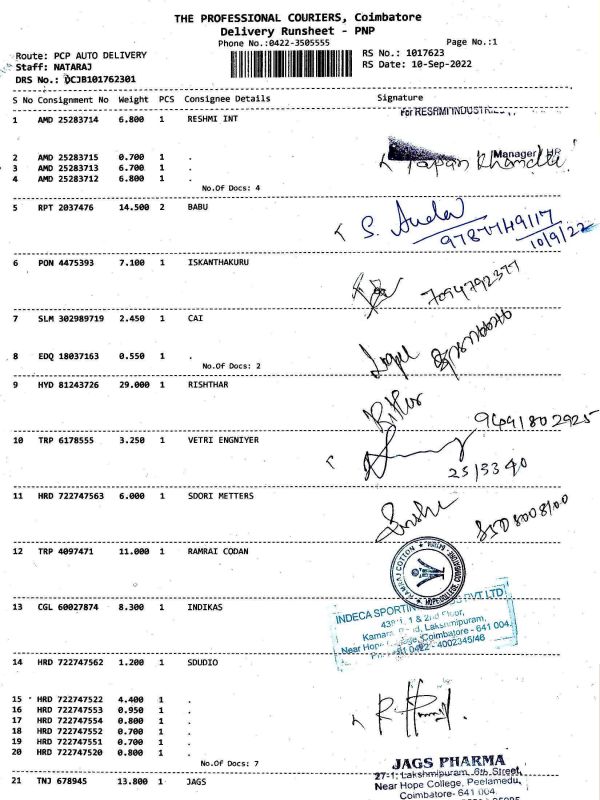 THE PROFESSIONAL COURIERS, Coimbatore
Delivery Runsheet - PNP
Phone No.:0422-3505555
Page No.:1
Route: PCP AUTO DELIVERY
RS No.: 1017623
Staff: NATARAJ
RS Date: 10-Sep-2022
DRS No.: DCJB101762301
S No Consignment No Weight PCS Consignee Details Signature
For RESHMI INDUSTRIES
1 AMD 25283714 6.800 1 RESHMI INT
Manager / HR
2 AMD 25283715 0.700 1 .
3 AMD 25283713 6.700 1 .
4 AMD 25283712 6.800 1 .
No.Of Docs: 4
5 RPT 2037476 14.500 2 BABU
10/9/22
6 PON 4475393 7.100 1 ISKANTHAKURU
7094792377
7 SLM 302989719 2.450 1 CAI
8 EDQ 18037163 0.550 1 .
No.Of Docs: 2
9 HYD 81243726 29.000 1 RISHTHAR
9491802925
10 TRP 6178555 3.250 1 VETRI ENGNIYER
2513340
11 HRD 722747563 6.000 1 SDORI METTERS
12 TRP 4097471 11.000 1 RAMRAI CODAN
RAMRAJ COTTON
HOPE COLLEGE, COIMBATORE
13 CGL 60027874 8.300 1 INDIKAS
INDECA SPORTING PVT LTD
1 & 2nd Floor,
Lakshmipuram,
Near Hope College, Coimbatore - 641 004.
0422 - 4002345/46
14 HRD 722747562 1.200 1 SDUDIO
15 HRD 722747522 4.400 1 .
16 HRD 722747553 0.950 1 .
17 HRD 722747554 0.800 1 .
18 HRD 722747552 0.700 1 .
19 HRD 722747551 0.700 1 .
20 HRD 722747520 0.800 1 .
No.Of Docs: 7
JAGS PHARMA
21 TNJ 678945 13.800 1 JAGS
27-1, Lakshmipuram, 6th Street,
Near Hope College, Peelamedu,
Coimbatore- 641 004.